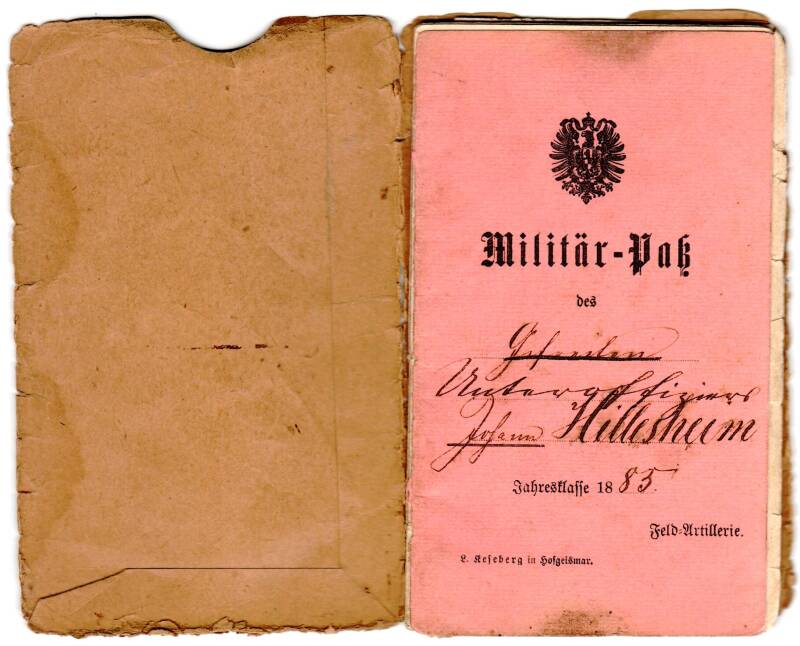 Militär-Paß
des
Gefreiten
Unteroffiziers
Johann Hillesheim
Jahresklasse 1885.
Feld-Artillerie.
L. Keseberg in Hofgeismar.